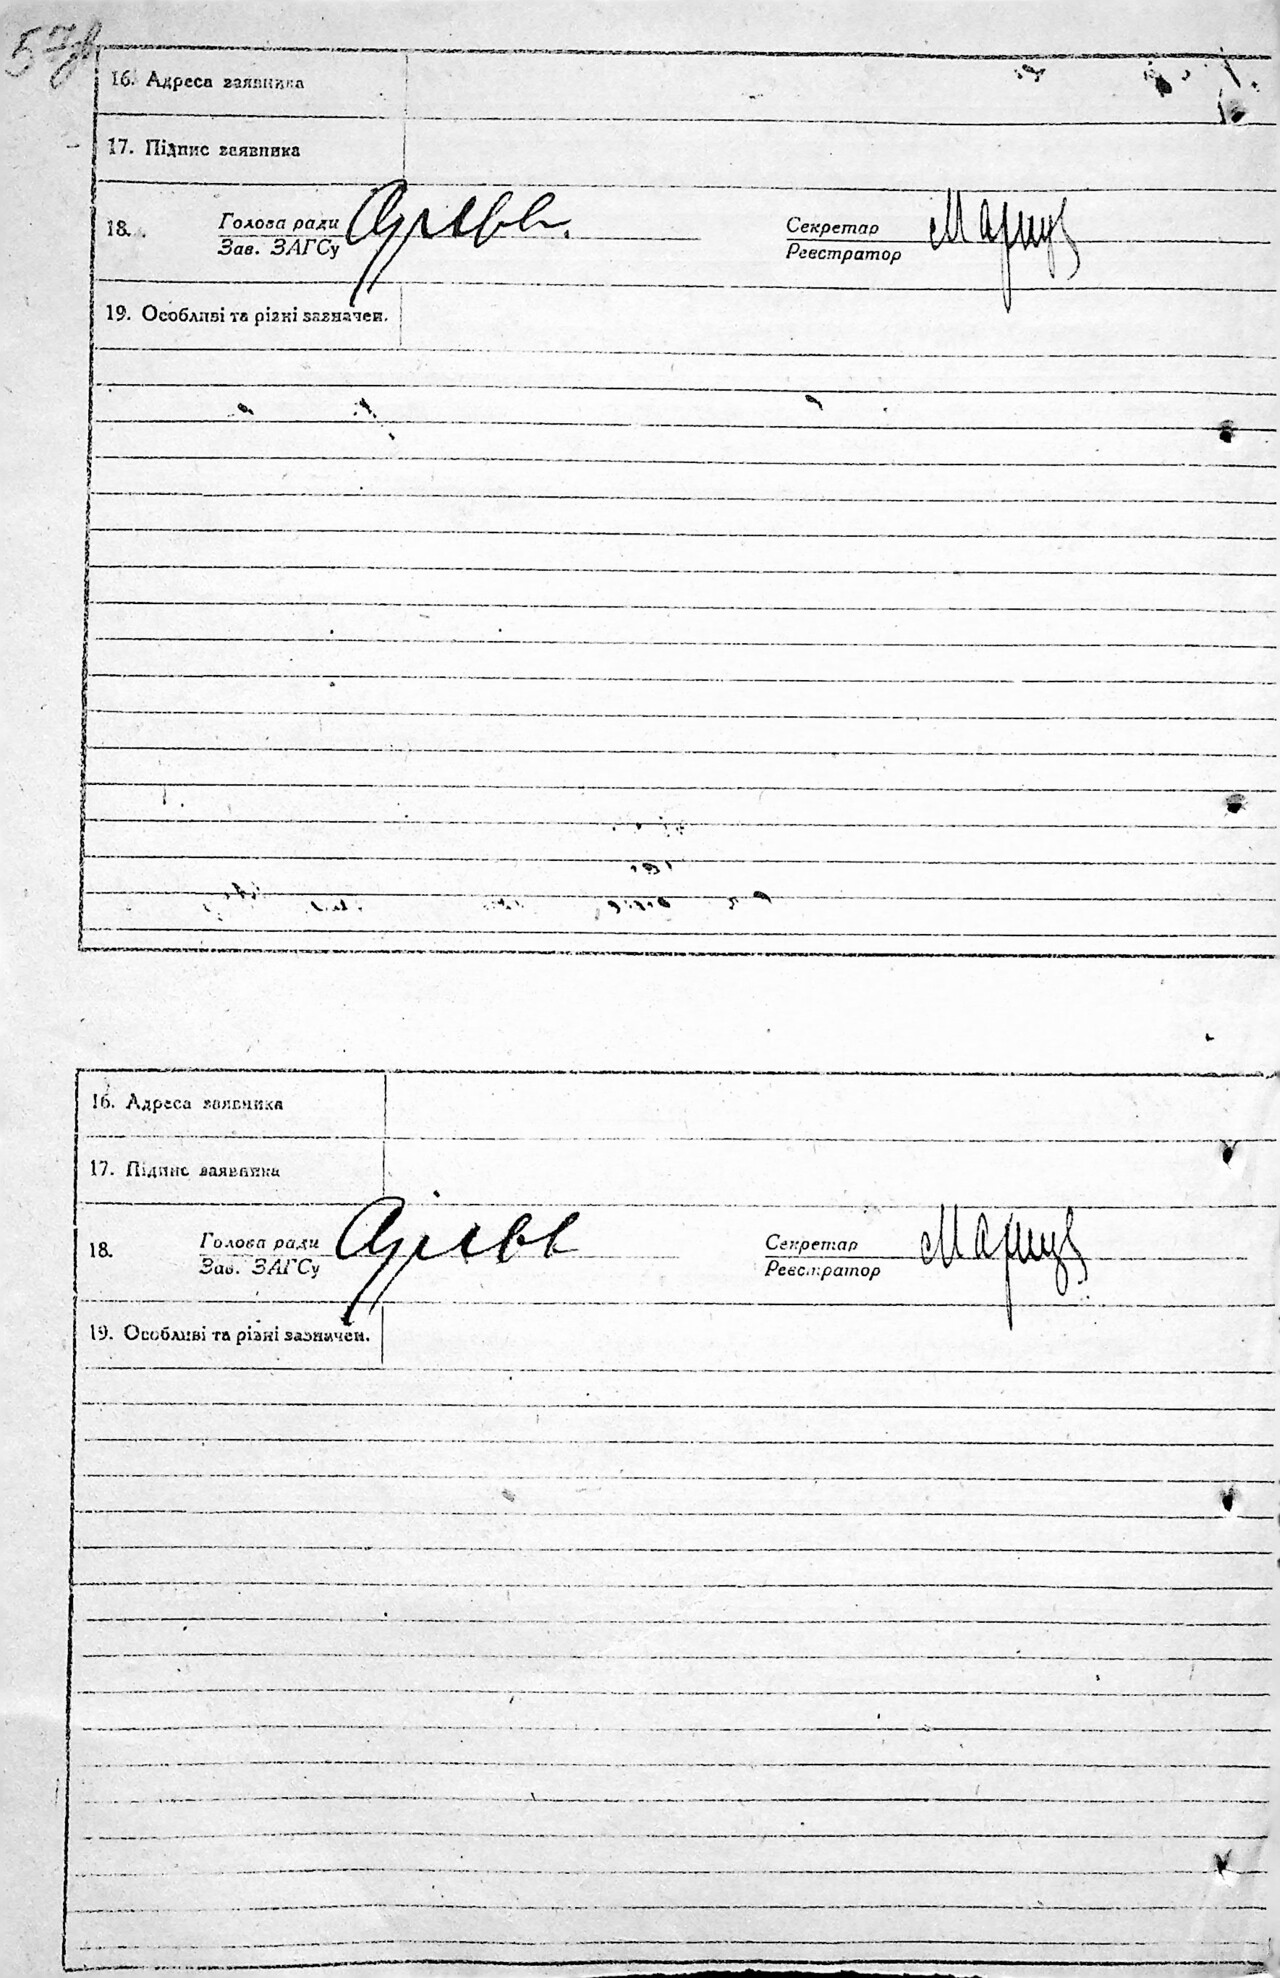 57
16. Адреса заявника
17. Підпис заявника
18. Голова ради Секретар
Зав. ЗАГСу Реєстратор
19. Особливі та різні зазначен.
16. Адреса заявника
17. Підпис заявника
18. Голова ради Секретар
Зав. ЗАГСу Реєстратор
19. Особливі та різні зазначен.